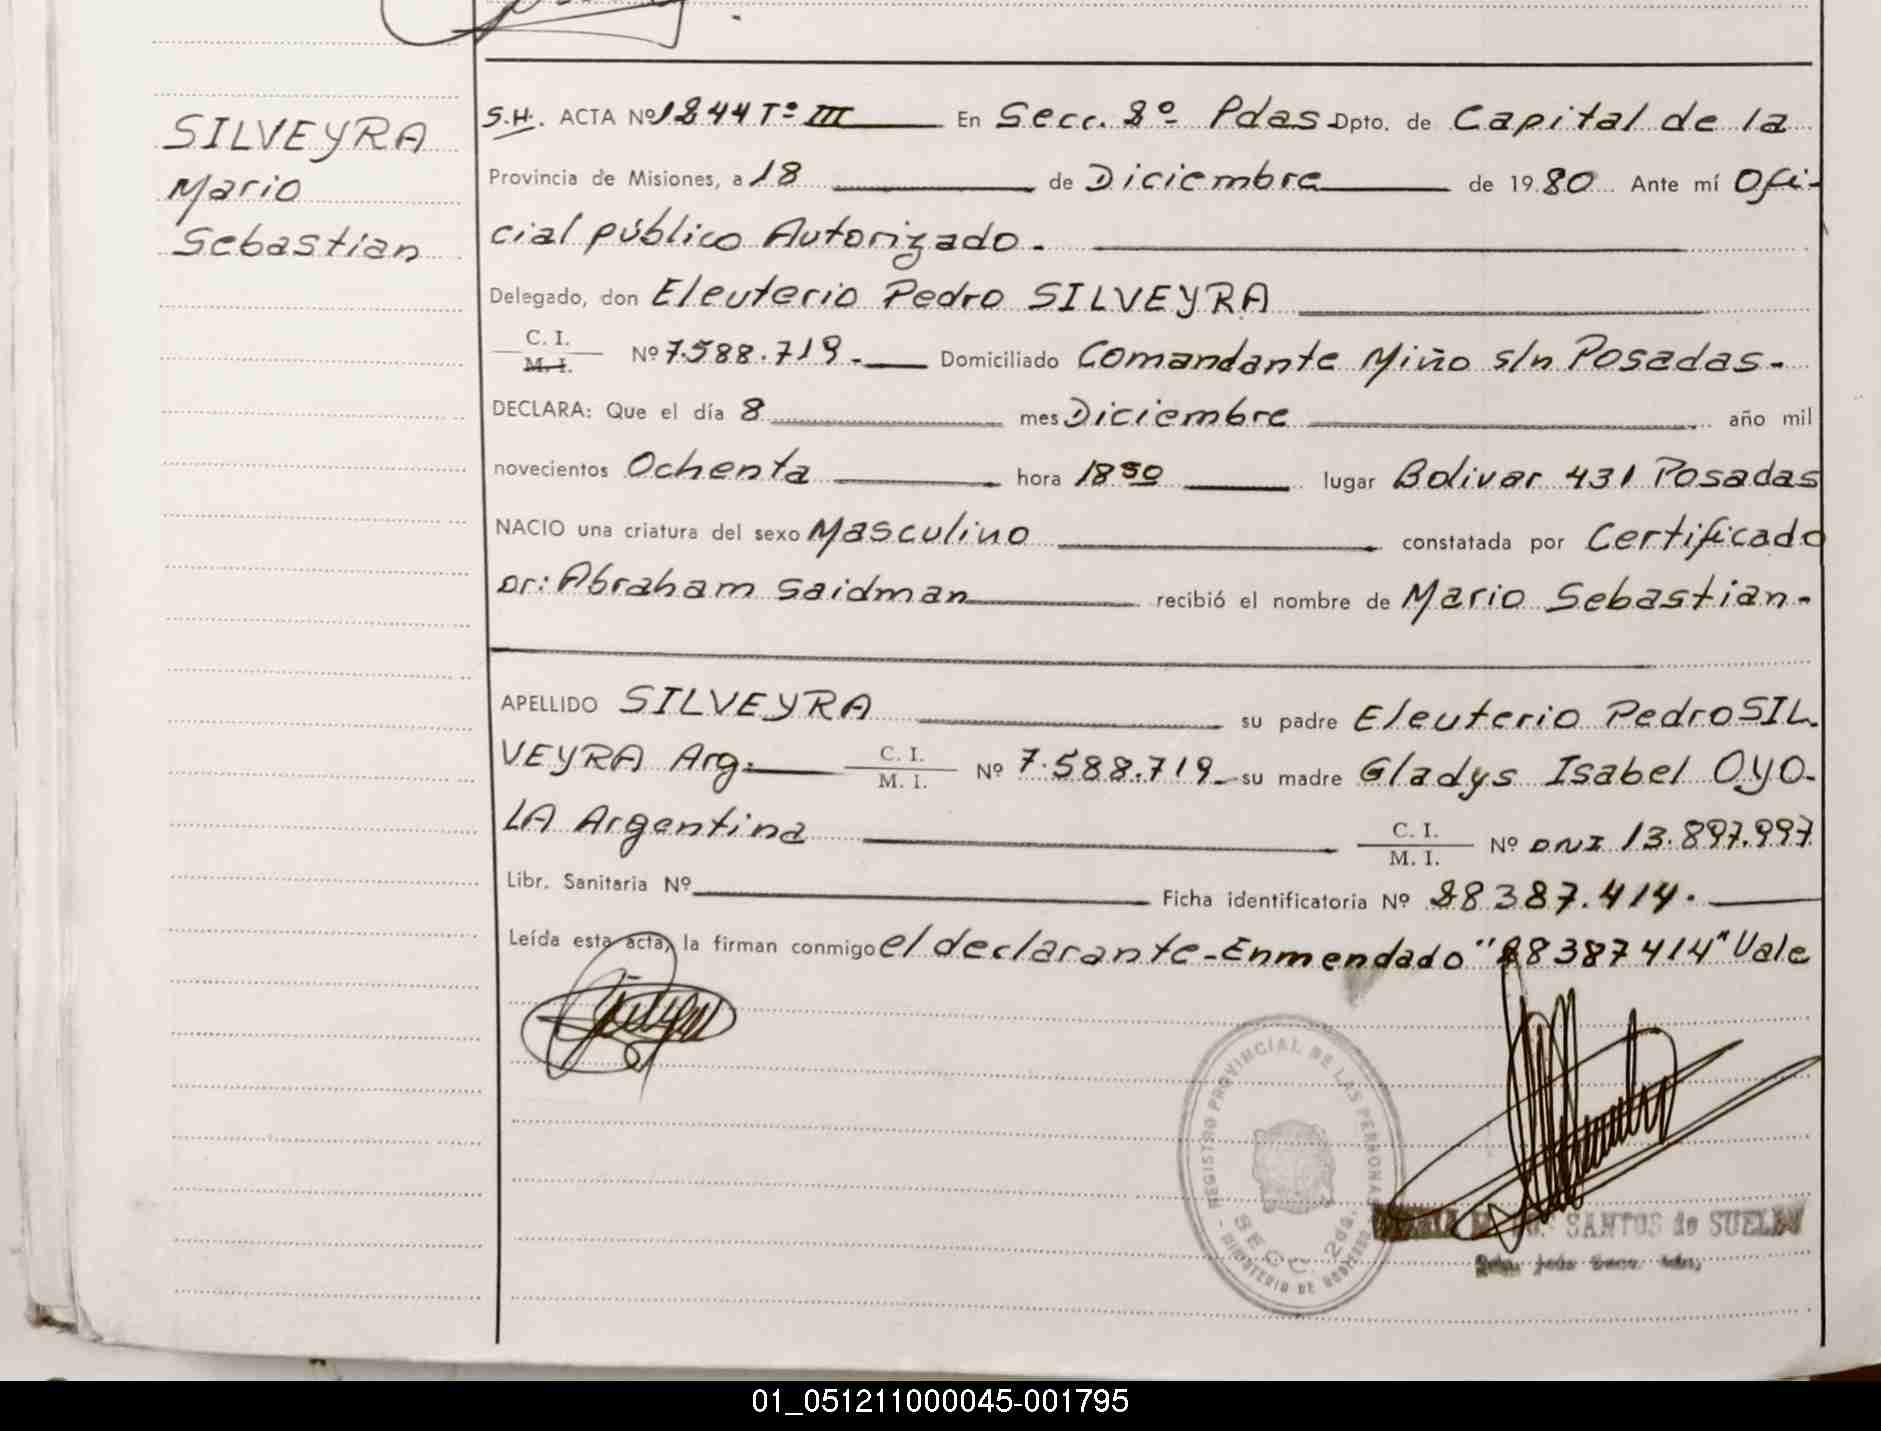 SILVEYRA
Mario
Sebastian
S.H. ACTA Nº 1844 Tº III En Secc. 2º Pdas Dpto. de Capital de la
Provincia de Misiones, a 18 de Diciembre de 1980 Ante mí Ofi-
cial público Autorizado.
Delegado, don Eleuterio Pedro SILVEYRA
C. I.
M. I. Nº 7.588.719. Domiciliado Comandante Miño s/n Posadas.
DECLARA: Que el día 8 mes Diciembre año mil
novecientos Ochenta hora 18 30 lugar Bolivar 431 Posadas
NACIO una criatura del sexo Masculino constatada por Certificado
Dr: Abraham Saidman recibió el nombre de Mario Sebastian.
APELLIDO SILVEYRA su padre Eleuterio Pedro SIL
VEYRA Arg. C. I.
M. I. Nº 7.588.719 su madre Gladys Isabel OYO-
LA Argentina C. I.
M. I. Nº DNI 13.897.997
Libr. Sanitaria Nº Ficha identificatoria Nº 28387.414.
Leída esta acta, la firman conmigo el declarante - Enmendado "28387414" Vale
REGISTRO PROVINCIAL DE LAS PERSONAS
SECC. 2da.
MINISTERIO DE GOBIERNO
SANTOS de
01_051211000045-001795